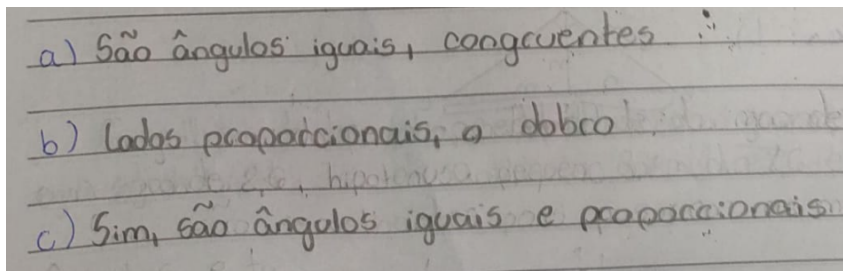 a) São ângulos iguais, congruentes ∴
b) Lados proporcionais, o dobro
c) Sim, são ângulos iguais e proporcionais